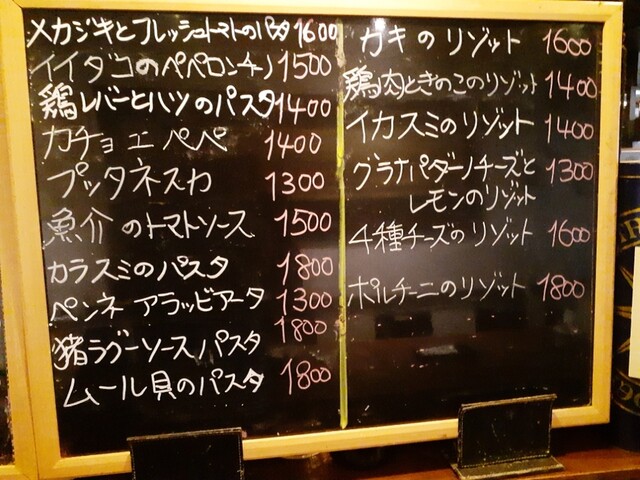 メカジキとフレッシュトマトのパスタ 1600
イイダコのペペロンチーノ 1500
鶏レバーとハツのパスタ 1400
カチョ エ ペペ 1400
プッタネスカ 1300
魚介のトマトソース 1500
カラスミのパスタ 1800
ペンネ アラッビアータ 1300
猪ラグーソースパスタ 1800
ムール貝のパスタ 1800
カキのリゾット 1600
鶏肉ときのこのリゾット 1400
イカスミのリゾット 1400
グラナパダーノチーズと 1300
レモンのリゾット
4種チーズのリゾット 1600
ポルチーニのリゾット 1800